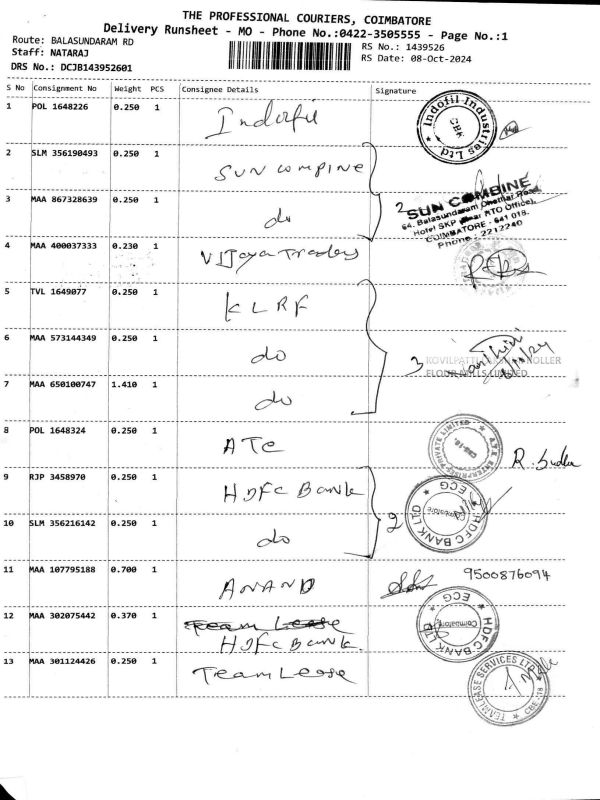 THE PROFESSIONAL COURIERS, COIMBATORE
Delivery Runsheet - MO - Phone No.:0422-3505555 - Page No.:1
Route: BALASUNDARAM RD
RS No.: 1439526
Staff: NATARAJ
RS Date: 08-Oct-2024
DRS No.: DCJB143952601
S No Consignment No Weight PCS Consignee Details Signature
1 POL 1648226 0.250 1 Indofil
Indofil Industries Ltd CBE
2 SLM 356190493 0.250 1 SUN COMPINE
3 MAA 867328639 0.250 1 do
2
SUN COMBINE
64, Balasundaram Chettiar Road,
Hotel SKP (Near RTO Office),
COIMBATORE - 641 018.
Phone : 2212240
4 MAA 400037333 0.230 1 Vijaya Traders
5 TVL 1649077 0.250 1 KLRF
6 MAA 573144349 0.250 1 do
3
KOVILPATTI ROLLER
FLOUR MILLS LIMITED
7 MAA 650100747 1.410 1 do
8 POL 1648324 0.250 1 ATE
A.T.E. ENTERPRISES PRIVATE LIMITED
9 RJP 3458970 0.250 1 HDFC Bank
10 SLM 356216142 0.250 1 do
2
HDFC BANK LTD ECG Coimbatore
11 MAA 107795188 0.700 1 ANAND
9500876094
12 MAA 302075442 0.370 1 Team Lease
HDFC Bank
HDFC BANK LTD ECG Coimbatore
13 MAA 301124426 0.250 1 Team Lease
TEAMLEASE SERVICES LTD CBE-18